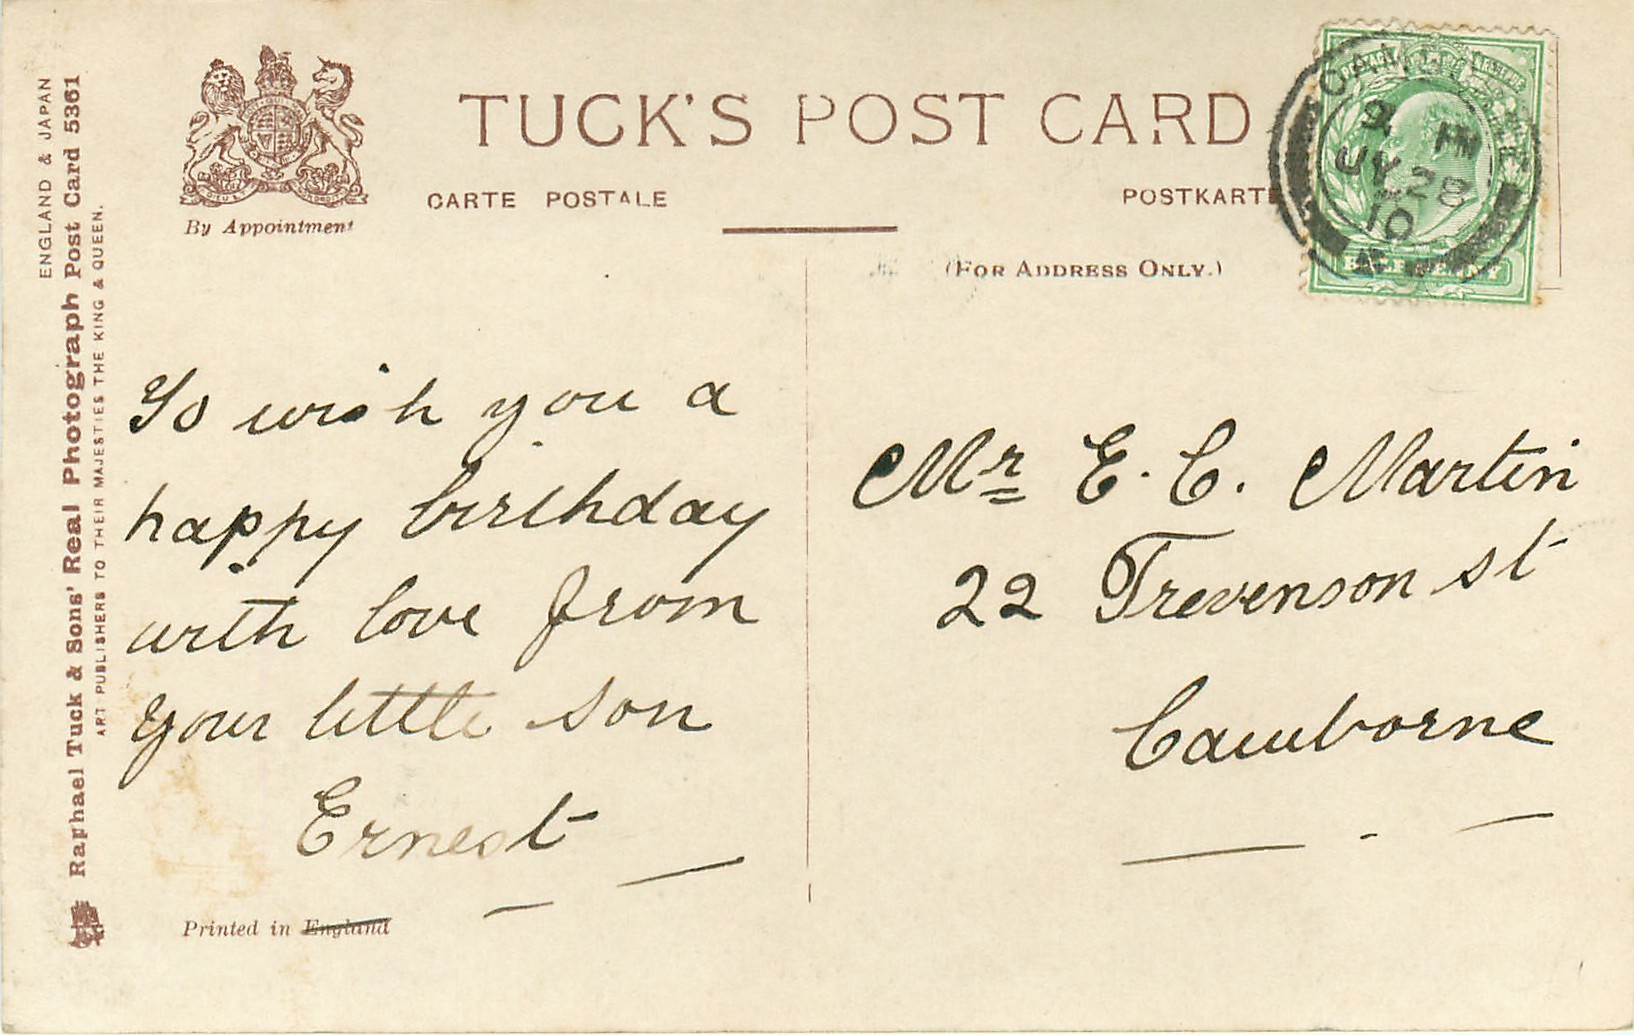 TUCK'S POST CARD
CARTE POSTALE
POSTKARTE
By Appointment
(FOR ADDRESS ONLY.)
ENGLAND & JAPAN
Raphael Tuck & Sons' Real Photograph Post Card 5361
ART PUBLISHERS TO THEIR MAJESTIES THE KING & QUEEN.
To wish you a
happy birthday
with love from
your little son
Ernest
Printed in England
JY 28
10
HALFPENNY
Mr E. C. Martin
22 Trevenson st
Camborne